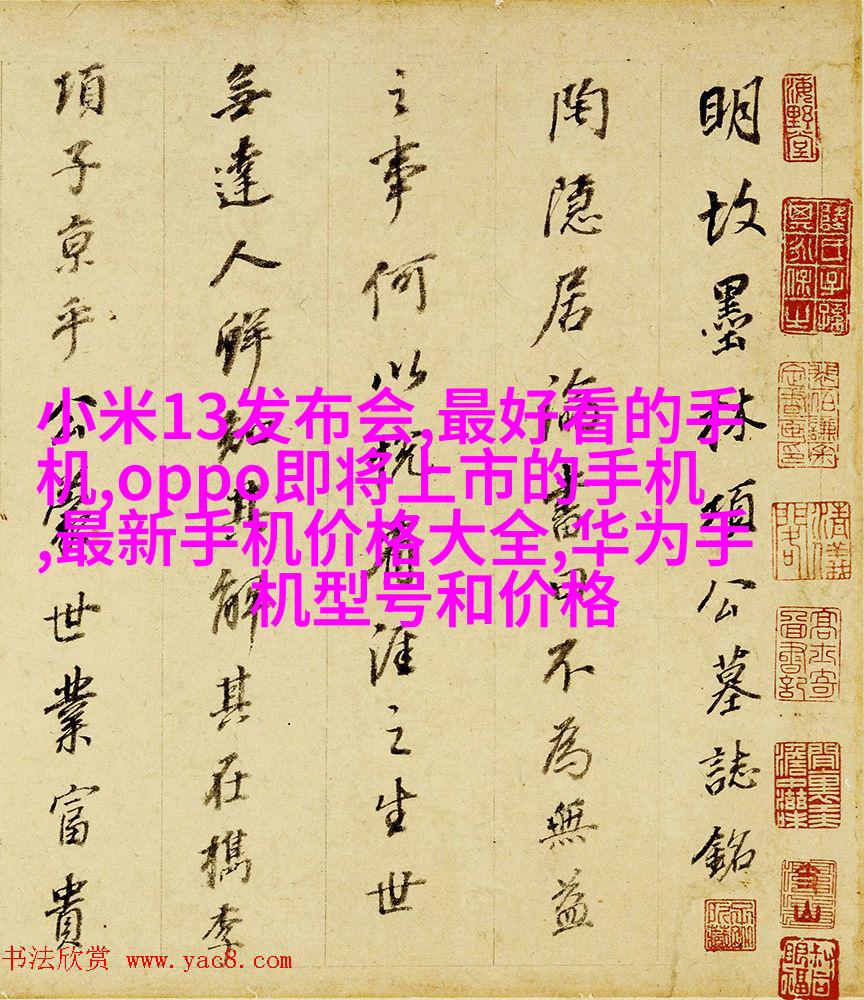 明故墨林項公墓誌銘
陶隱居論書曰不為無益
之事何以悅有涯之生世
無達人鮮知其解其在檇李
項子京乎公世業富貴
海野堂
小米13发布会,最好看的手
机,oppo即将上市的手机
,最新手机价格大全,华为手
机型号和价格
书法欣赏 www.yac8.com